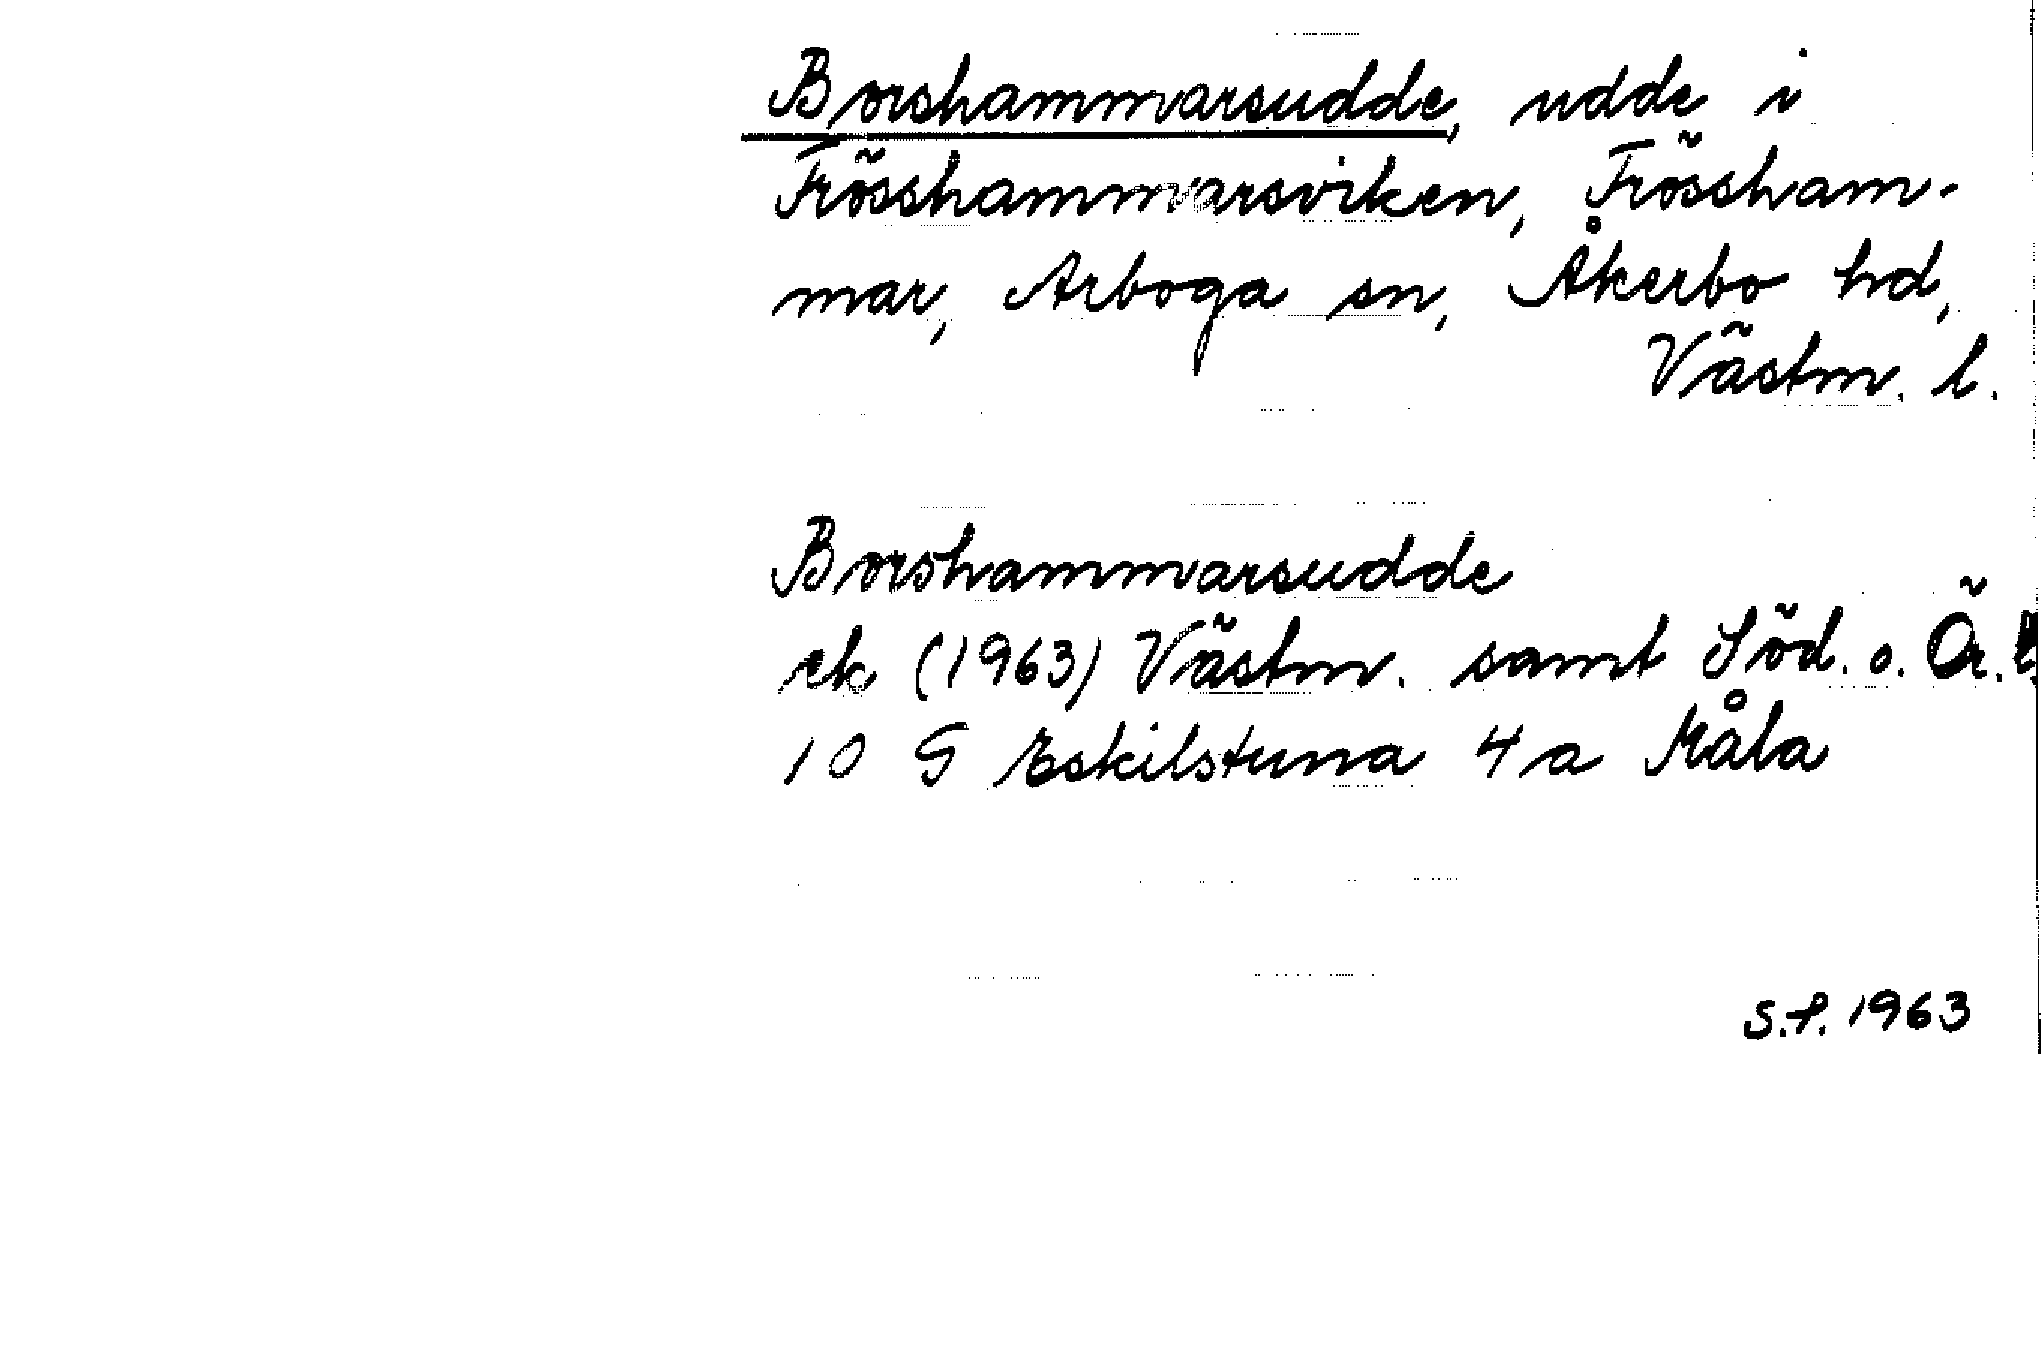 Borshammarsudde, udde i
Frösshammarsviken, Frössham-
mar, Arboga sn, Åkerbo hd,
Västm. l.
Borshammarsudde
ek (1963) Västm. samt Söd. o. Ör. l.
10 G Eskilstuna 4 a Måla
S.P. 1963